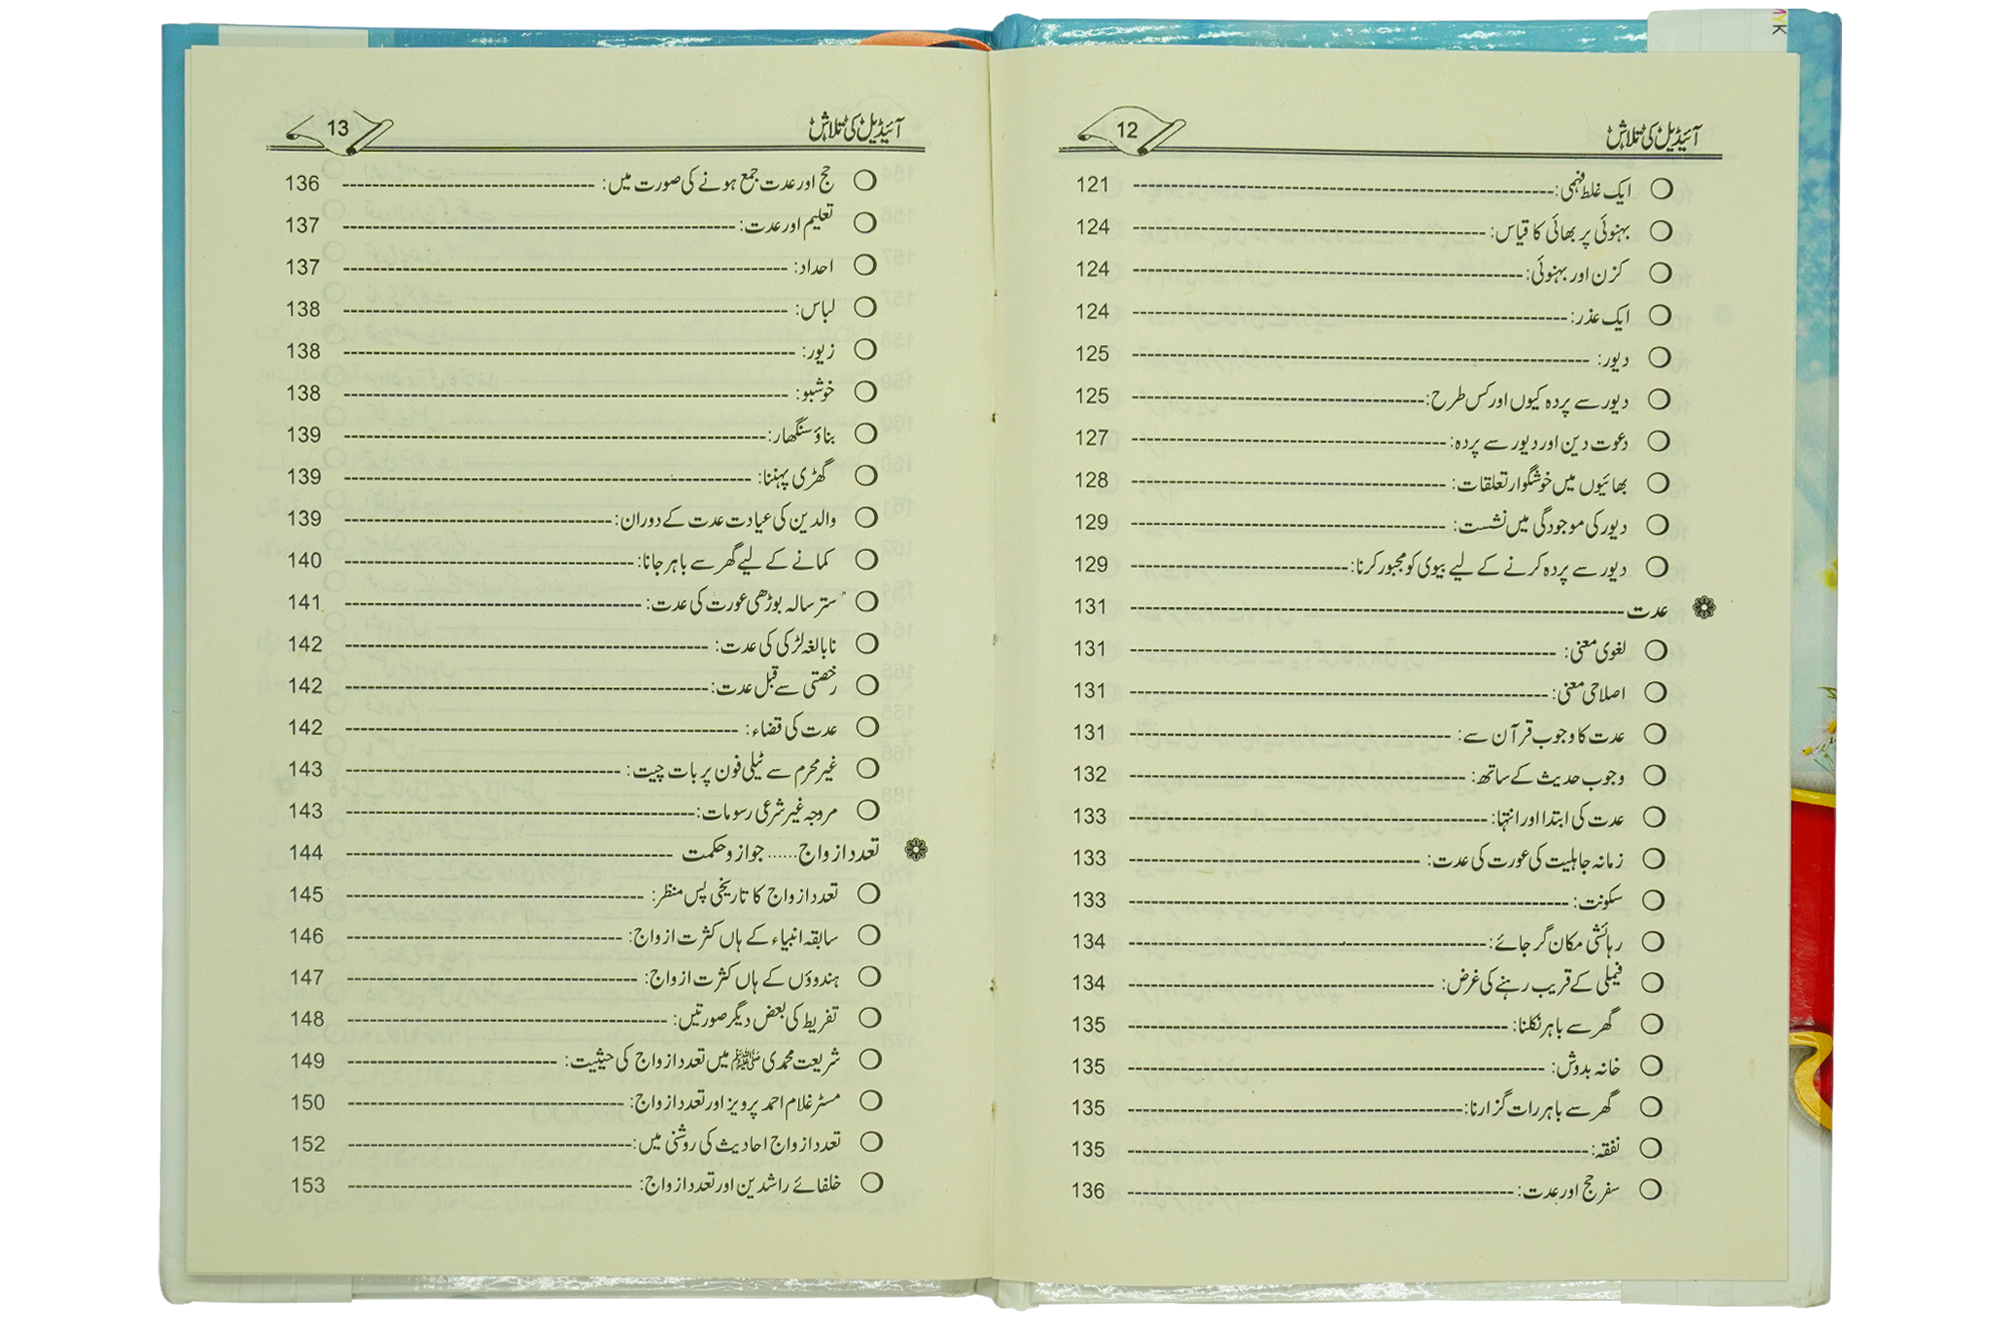 آئیڈیل کی تلاش 12
ایک غلط فہمی: 121
بہنوئی پر بھائی کا قیاس: 124
کزن اور بہنوئی: 124
ایک عذر: 124
دیور: 125
دیور سے پردہ کیوں اور کس طرح: 125
دعوت دین اور دیور سے پردہ: 127
بھائیوں میں خوشگوار تعلقات: 128
دیور کی موجودگی میں نشست: 129
دیور سے پردہ کرنے کے لیے بیوی کو مجبور کرنا: 129
عدت 131
لغوی معنی: 131
اصلاحی معنی: 131
عدت کا وجوب قرآن سے: 131
وجوب حدیث کے ساتھ: 132
عدت کی ابتدا اور انتہا: 133
زمانہ جاہلیت کی عورت کی عدت: 133
سکونت: 133
رہائشی مکان گر جائے: 134
فیملی کے قریب رہنے کی غرض: 134
گھر سے باہر نکلنا: 135
خانہ بدوش: 135
گھر سے باہر رات گزارنا: 135
نفقہ: 135
سفر حج اور عدت: 136
آئیڈیل کی تلاش 13
حج اور عدت جمع ہونے کی صورت میں: 136
تعلیم اور عدت: 137
احداد: 137
لباس: 138
زیور: 138
خوشبو: 138
بناؤ سنگھار: 139
گھڑی پہننا: 139
والدین کی عیادت عدت کے دوران: 139
کمانے کے لیے گھر سے باہر جانا: 140
ستر سالہ بوڑھی عورت کی عدت: 141
نابالغہ لڑکی کی عدت: 142
رخصتی سے قبل عدت: 142
عدت کی قضاء: 142
غیر محرم سے ٹیلی فون پر بات چیت: 143
مروجہ غیر شرعی رسومات: 143
تعدد ازواج...... جواز و حکمت 144
تعدد ازواج کا تاریخی پس منظر: 145
سابقہ انبیاء کے ہاں کثرت ازواج: 146
ہندوؤں کے ہاں کثرت ازواج: 147
تفریط کی بعض دیگر صورتیں: 148
شریعت محمدی ﷺ میں تعدد ازواج کی حیثیت: 149
مسٹر غلام احمد پرویز اور تعدد ازواج: 150
تعدد ازواج احادیث کی روشنی میں: 152
خلفائے راشدین اور تعدد ازواج: 153